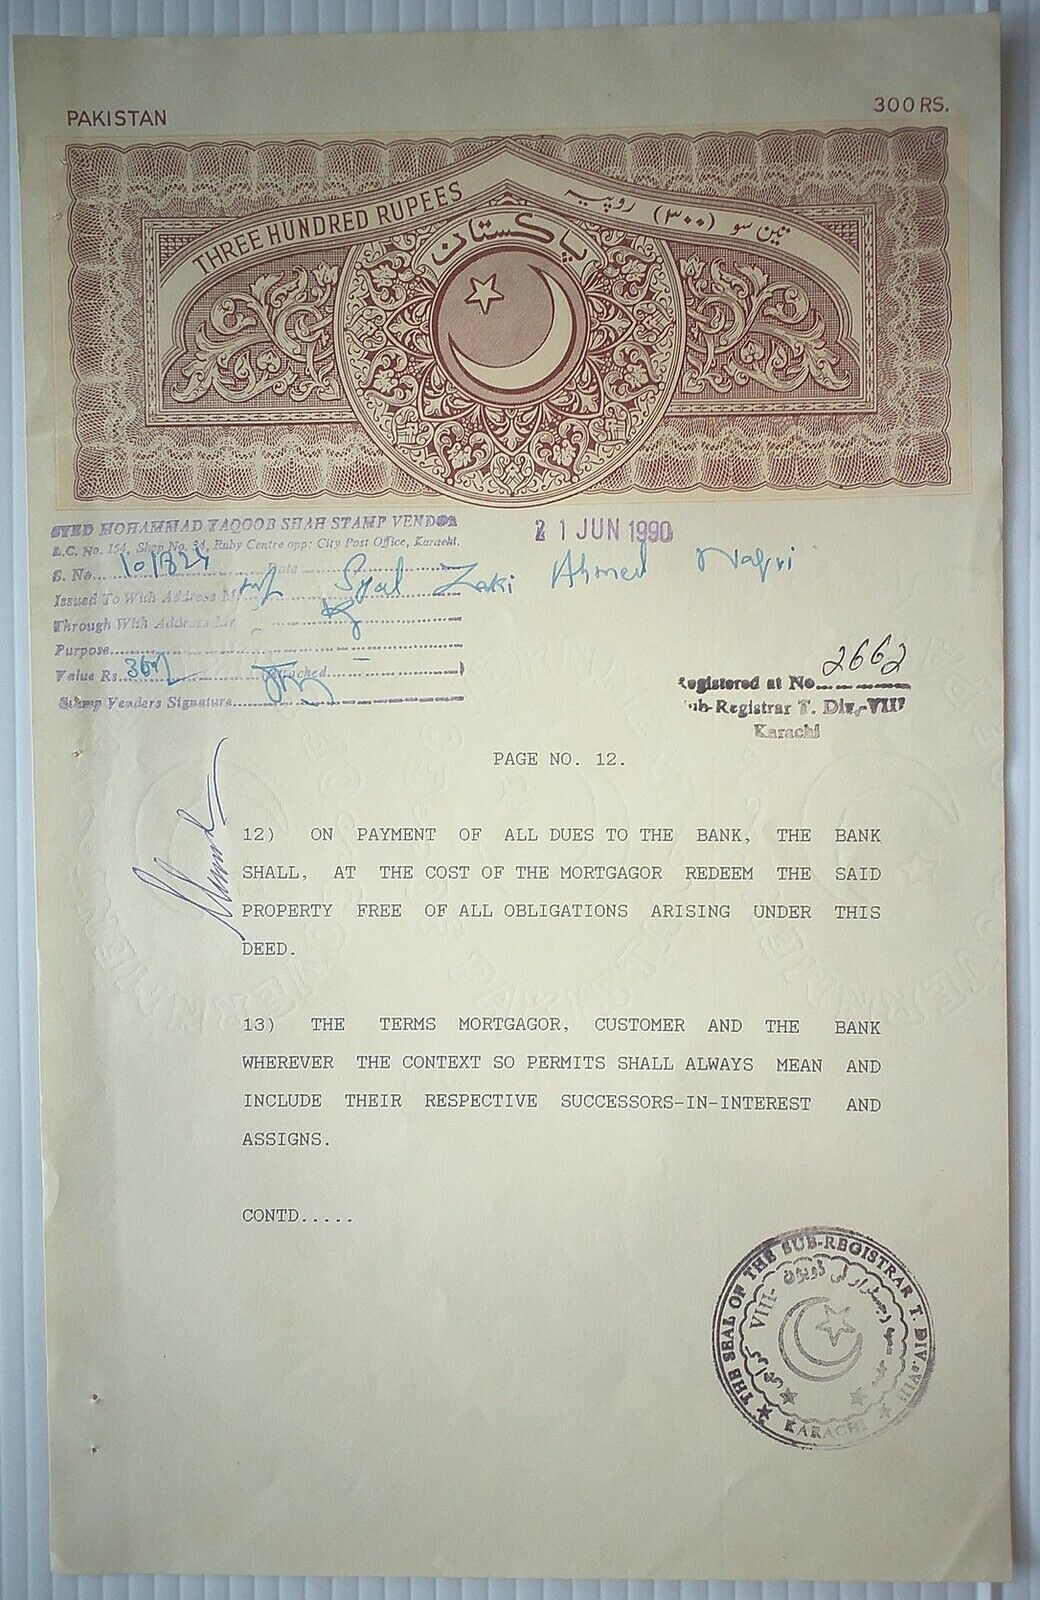 PAKISTAN 300 RS.
THREE HUNDRED RUPEES
تین سو (۳۰۰) روپیہ
پاکستان
SYED MOHAMMAD YAQOOB SHAH STAMP VENDOR
L.C. No. 154, Shop No. 34, Ruby Centre opp: City Post Office, Karachi.
21 JUN 1990
S. No. Date
Syed Zaki Ahmed Naqvi
Issued To With Address M
Through With Address Mr
Purpose
Value Rs. Attached
Stamp Venders Signature
Registered at No. 2662
Sub-Registrar T. Div.-VIII
Karachi
PAGE NO. 12.
12) ON PAYMENT OF ALL DUES TO THE BANK, THE BANK
SHALL, AT THE COST OF THE MORTGAGOR REDEEM THE SAID
PROPERTY FREE OF ALL OBLIGATIONS ARISING UNDER THIS
DEED.
13) THE TERMS MORTGAGOR, CUSTOMER AND THE BANK
WHEREVER THE CONTEXT SO PERMITS SHALL ALWAYS MEAN AND
INCLUDE THEIR RESPECTIVE SUCCESSORS-IN-INTEREST AND
ASSIGNS.
CONTD.....
THE SEAL OF THE SUB-REGISTRAR T. DIV. VIII
KARACHI
VIII- کراچی